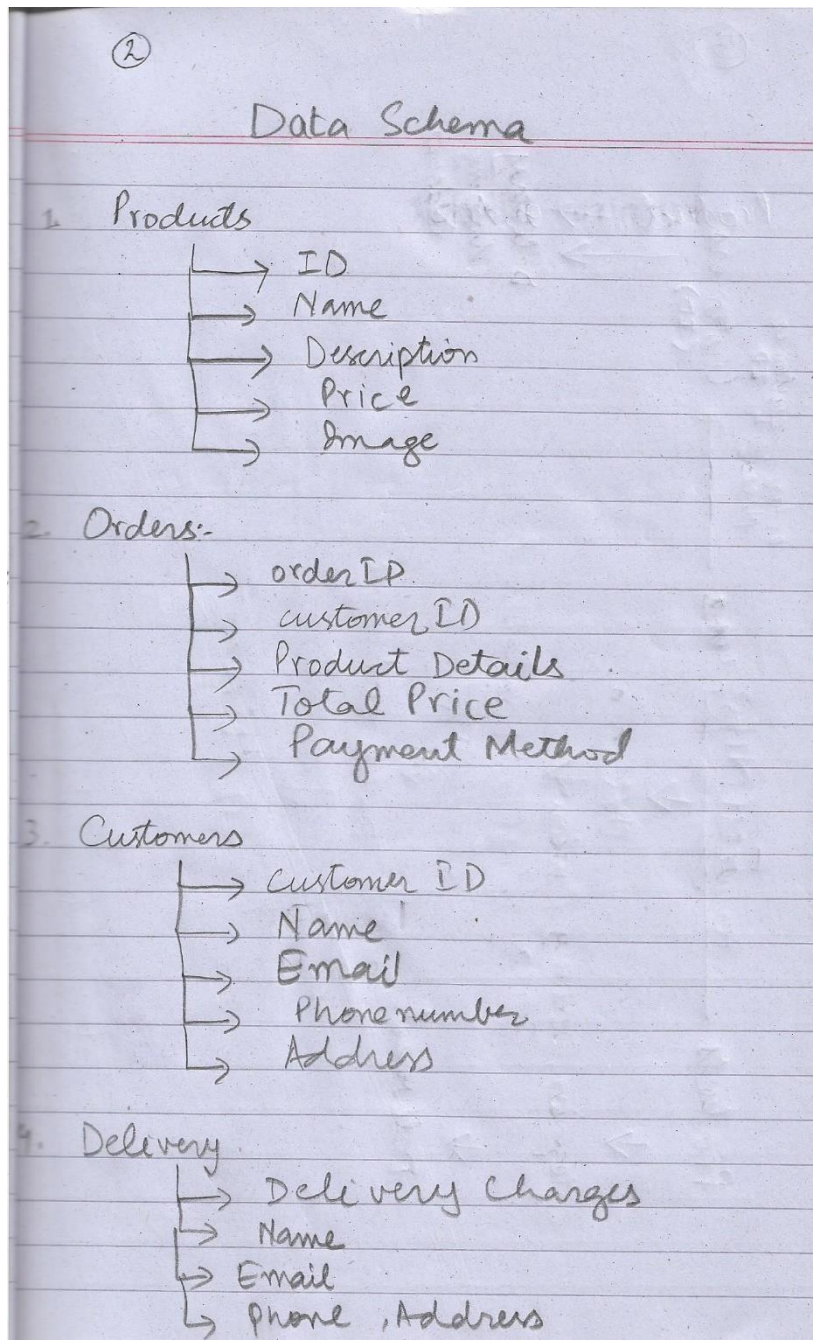 2
Data Schema
1. Products
ID
Name
Description
Price
Image
2. Orders:-
orderID
customerID
Product Details
Total Price
Payment Method
3. Customers
Customer ID
Name
Email
Phonenumber
Address
4. Delivery
Delivery Charges
Name
Email
phone, Address